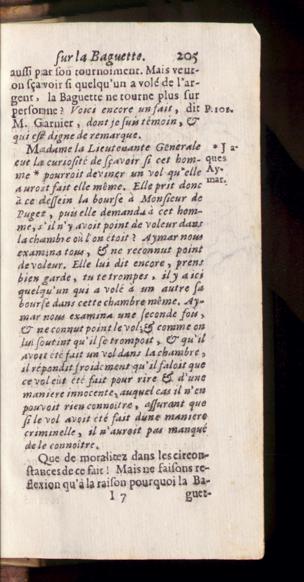 sur la Baguette. 205
aussi par son tournoiment. Mais veut-
on sçavoir si quelqu'un a volé de l'ar-
gent, la Baguette ne tourne plus sur
personne ? Voici encore un fait, dit P. 108.
M. Garnier, dont je suis témoin, &
qui est digne de remarque.
Madame la Lieutenante Generale
eut la curiosité de sçavoir si cet hom-
me * pourroit deviner un vol qu'elle
auroit fait elle même. Elle prit donc
à ce dessein la bourse à Monsieur de
Puget, puis elle demanda à cet hom-
me, s'il n'y avoit point de voleur dans
la chambre où l'on étoit ? Aymar nous
examina tous, & ne reconnut point
de voleur. Elle lui dit encore, prens
bien garde, tu te trompes, il y a ici
quelqu'un qui a volé à un autre sa
bourse dans cette chambre même. Ay-
mar nous examina une seconde fois,
& ne connut point le vol; & comme on
lui soutint qu'il se trompoit, & qu'il
avoit été fait un vol dans la chambre,
il répondit froidement qu'il faloit que
ce vol eût été fait pour rire & d'une
maniere innocente, auquel cas il n'en
pouvoit rien connoître, assurant que
si le vol avoit été fait d'une maniere
criminelle, il n'auroit pas manqué
de le connoître.
Que de moralitez dans les circon-
stances de ce fait ! Mais ne faisons re-
flexion qu'à la raison pourquoi la Ba-
I 7 guet-
* Ja-
ques
Ay-
mar.